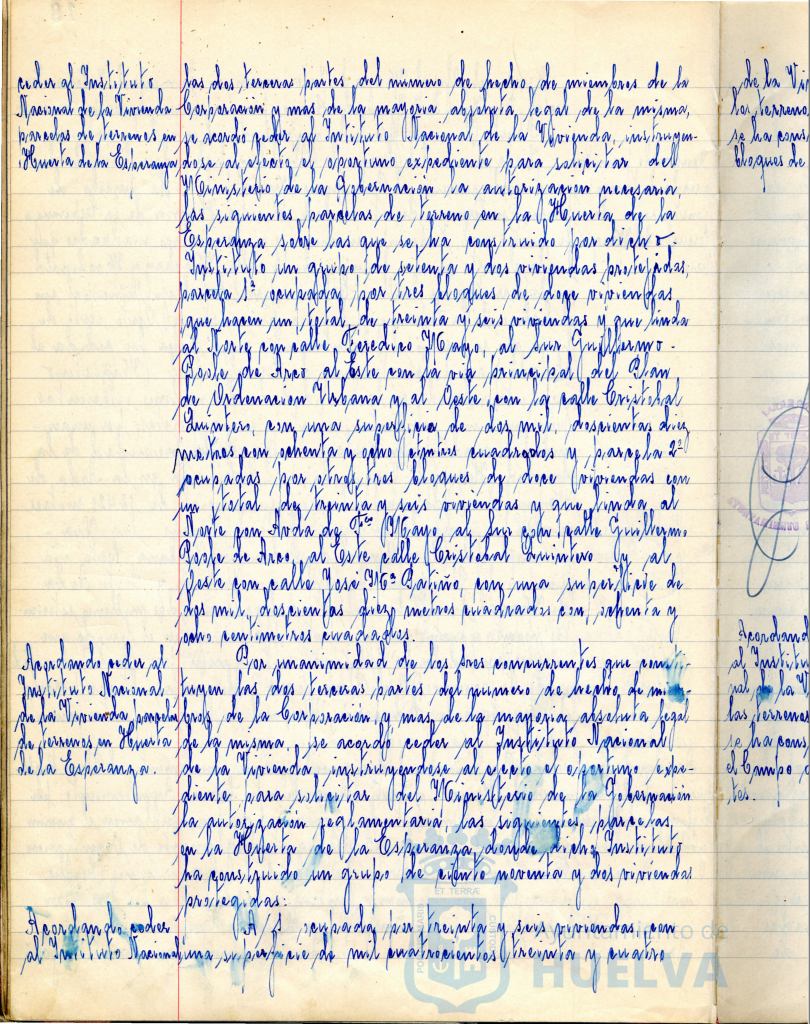 ceder al Instituto
Nacional de la Vivienda
parcelas de terrenos en
Huerta de la Esperanza
las dos terceras partes del número de hecho de miembros de la
Corporación y mas de la mayoria absoluta legal de la misma,
se acordó ceder al Intituto Nacional de la Vivienda, instruyen-
dose al efecto el oportuno expediente para solicitar del
Ministerio de la Gobernación la autorización necesaria,
las siguientes parcelas de terreno en la Huerta de la
Esperanza sobre las que se ha construido por dicho
Instituto un grupo de setenta y dos viviendas protegidas;
parcela 1ª ocupada por tres bloques de doce viviendas
que hacen un total de treinta y seis viviendas y que linda
al Norte con calle Federico Mayo, al Sur Guillermo
Poste de Arco al Este con la via principal del Plan
de Ordenación Urbana y al Oeste con la calle Cristobal
Quintero, con una superficie de dos mil doscientas diez
metros con ochenta y ocho ctmtros cuadrados y parcela 2ª
ocupadas por otros tres bloques de doce viviendas con
un total de treinta y seis viviendas y que linda al
Norte con Avda de Fco Mayo al Sur con calle Guillermo
Poste de Arco, al Este calle Cristobal Quintero y al
Oeste con calle José Mª Patiño, con una superficie de
dos mil doscientas diez metros cuadrados con ochenta y
ocho centímetros cuadados.
Acordando ceder al
Instituto Nacional
de la Vivienda parcelas
de terrenos en Huerta
de la Esperanza.
Por unanimidad de los sres concurrentes que consti-
tuyen las dos terceras partes del numero de hecho de miem-
bros de la Corporación y mas de la mayoria absoluta legal
de la misma, se acordó ceder al Instituto Nacional
de la Vivienda instruyendose al efecto el oportuno expe-
diente para solicitar del Ministerio de la Gobernación
la autorización reglamentaria, las siguientes parcelas,
en la Huerta de la Esperanza, donde dicho Instituto
ha construido un grupo de ciento noventa y dos viviendas
protegidas:
Acordando ceder
al Instituto Nacional
A/ ocupada por treinta y seis viviendas, con
una superficie de mil cuatrocientos treinta y cuatro
de la Vi
los terreno
se ha cons
bloques de
Acordand
al Institu
nal de la V
las terrenos
se ha cons
el Campo
tes.
ET TERRÆ
Ayuntamiento de
HUELVA